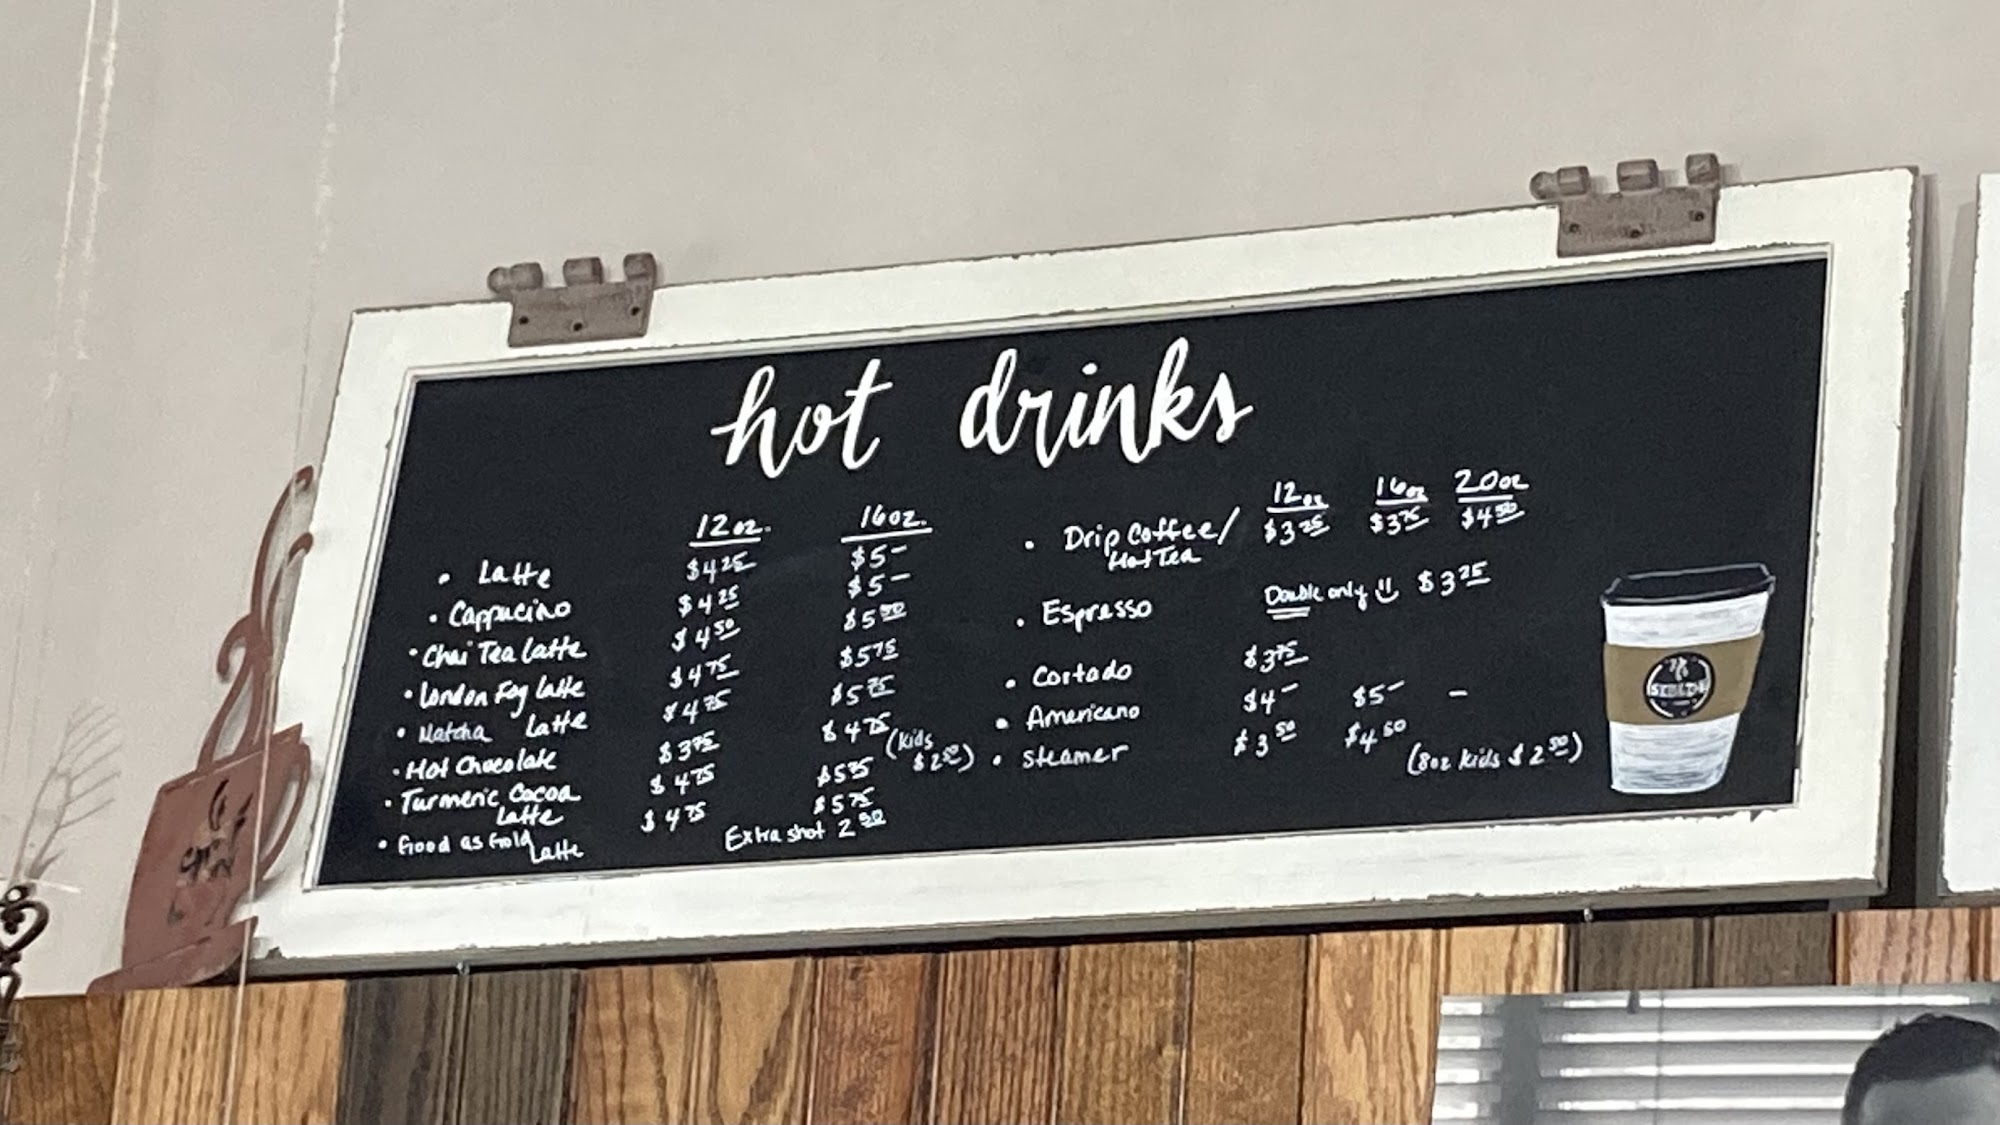 hot drinks
12oz. 16oz.
• Latte $4.25 $5-
• Cappucino $4.25 $5-
• Chai Tea Latte $4.50 $5.50
• London Fog Latte $4.75 $5.75
• Matcha Latte $4.75 $5.75
• Hot Chocolate $3.75 $4.75 (kids $2.50)
• Turmeric Cocoa Latte $4.75 $5.75
• Good as Gold Latte $4.75 $5.75
Extra shot 2.50
12oz 16oz 20oz
• Drip Coffee/ $3.25 $3.75 $4.50
Hot Tea
• Espresso Double only $3.25
• Cortado $3.75
• Americano $4- $5- -
• Steamer $3.50 $4.50 (8oz kids $2.50)